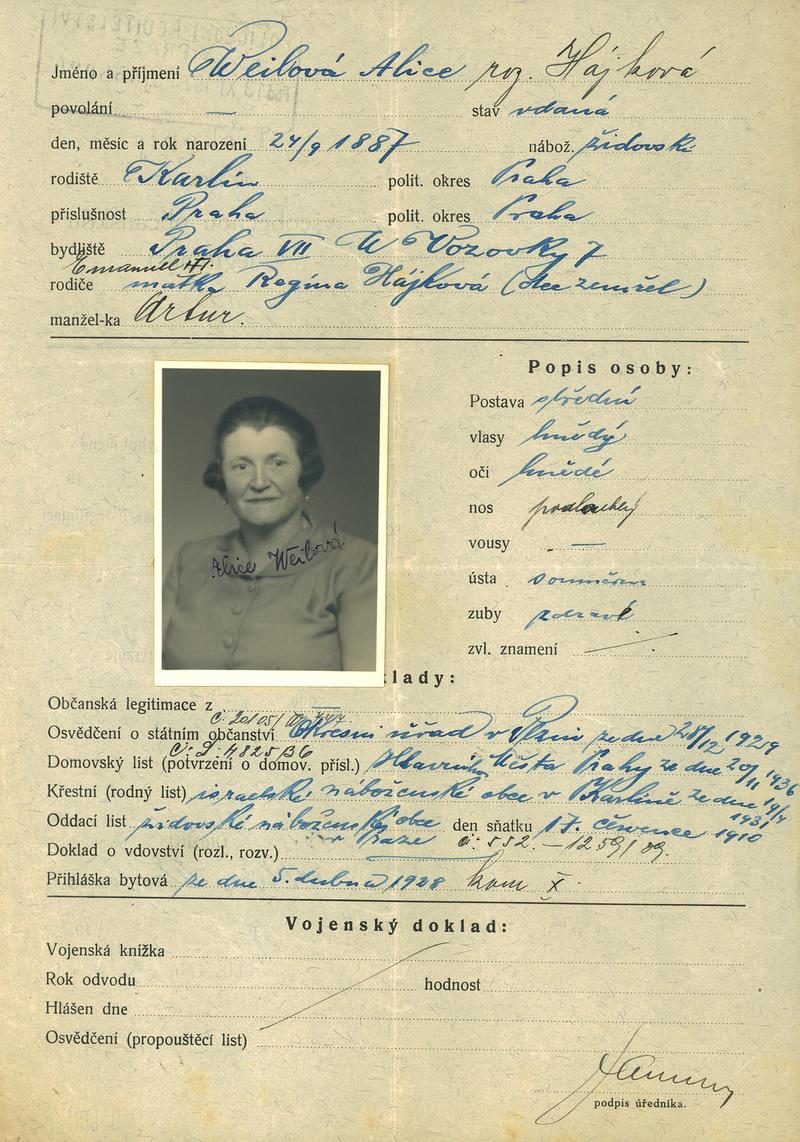 Jméno a příjmení Weilová Alice roz. Hájková
povolání — stav vdaná
den, měsíc a rok narození 24/9 1887 nábož. židovské
rodiště Karlín polit. okres Praha
příslušnost Praha polit. okres Praha
bydliště Praha VII U Vozovky 7
Emanuel H.
rodiče matka Regina Hájková (otec zemřel)
manžel-ka Artur.
Popis osoby:
Postava střední
vlasy hnědý
oči hnědé
nos podlouhlý
vousy —
ústa souměrná
zuby zdravé
zvl. znamení
Alice Weilová
klady:
Občanská legitimace z —
Osvědčení o státním občanství Okresní úřad v Plzni ze dne 28/12 1929
Domovský list (potvrzení o domov. přísl.) Hlavního města Prahy ze dne 20/11 1936
Křestní (rodný list) israelské náboženské obce v Karlíně ze dne 19/4 1931
Oddací list židovské náboženské obce v Praze den sňatku 17. července 1910
Doklad o vdovství (rozl., rozv.)
Přihláška bytová ze dne 5. dubna 1928 kom X.
Vojenský doklad:
Vojenská knížka
Rok odvodu hodnost
Hlášen dne
Osvědčení (propouštěcí list)
podpis úředníka.